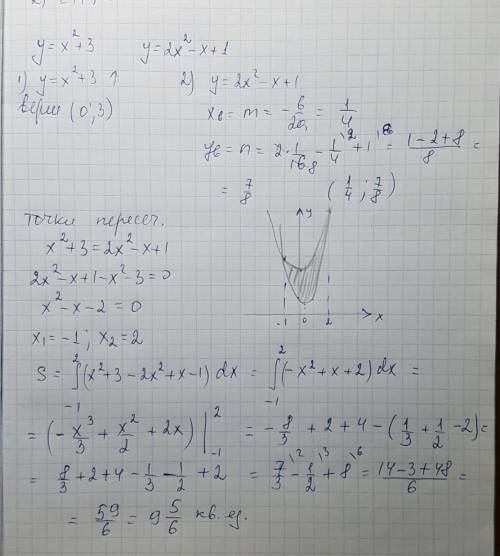 y=x²+3 y=2x²-x+1
1) y=x²+3 ↑ 2) y=2x²-x+1
верш (0;3) xв = m = -b/2a = 1/4
yв = n = 2·1/16 - 1/4 + 1 = (1-2+8)/8 =
= 7/8 (1/4; 7/8)
точки пересеч.
x²+3=2x²-x+1
2x²-x+1-x²-3=0
x²-x-2=0
x₁=-1; x₂=2
y
-1 0 2 x
S = ∫₋₁² (x²+3-2x²+x-1) dx = ∫₋₁² (-x²+x+2) dx =
= (-x³/3 + x²/2 + 2x) |₋₁² = -8/3 + 2 + 4 - (1/3 + 1/2 - 2) =
= 8/3 + 2 + 4 - 1/3 - 1/2 + 2 = 7/3 - 1/2 + 8 = (14-3+48)/6 =
= 59/6 = 9 5/6 кв. ед.